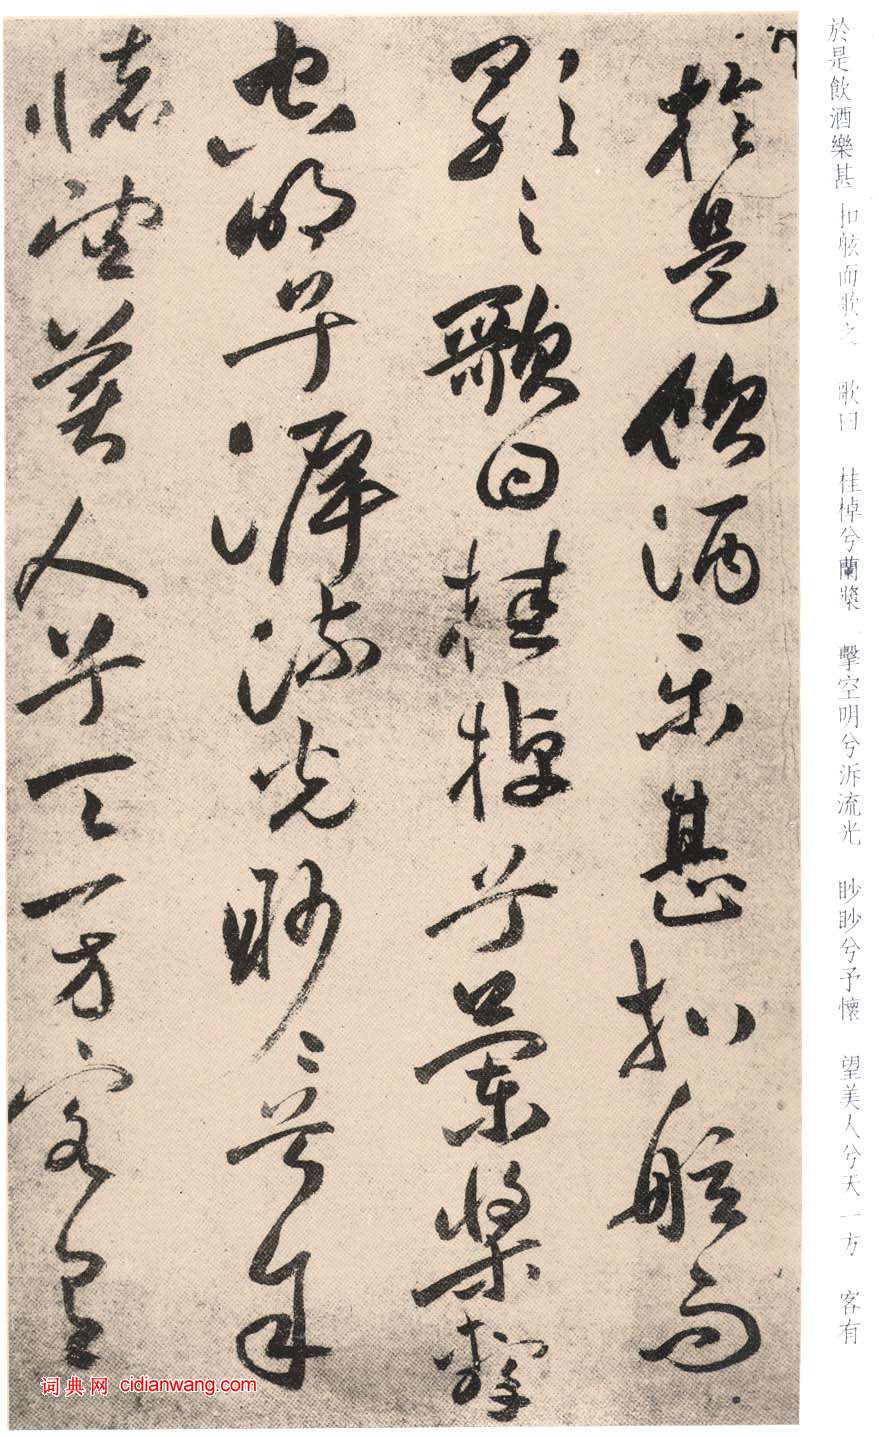 於是飲酒樂甚 扣舷而歌之 歌曰 桂棹兮蘭槳 擊空明兮泝流光 眇眇兮予懷 望美人兮天一方 客有
於是飲酒樂甚扣舷而
歌之歌曰桂棹兮蘭槳擊
空明兮泝流光眇々兮予
懷望美人兮天一方客有
词典网 cidianwang.com